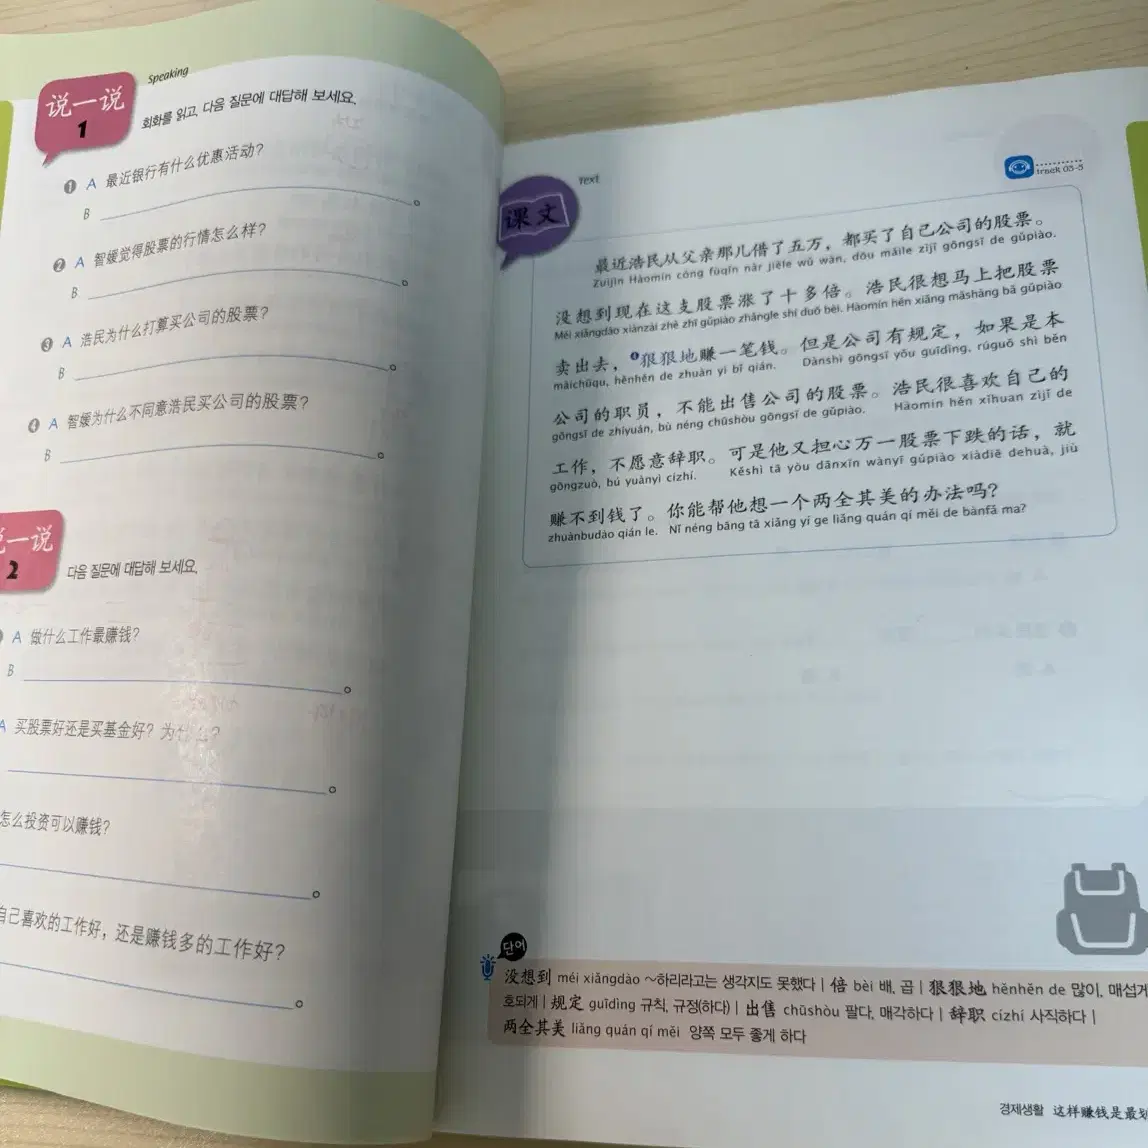 说一说
1
Speaking
회화를 읽고, 다음 질문에 대답해 보세요.
❶ A 最近银行有什么优惠活动?
B 。
❷ A 智媛觉得股票的行情怎么样?
B 。
❸ A 浩民为什么打算买公司的股票?
B 。
❹ A 智媛为什么不同意浩民买公司的股票?
B 。
说一说
2
다음 질문에 대답해 보세요.
A 做什么工作最赚钱?
B 。
A 买股票好还是买基金好? 为什么?
。
怎么投资可以赚钱?
。
自己喜欢的工作好，还是赚钱多的工作好?
。
课文
Text
track 03-5
最近浩民从父亲那儿借了五万，都买了自己公司的股票。
Zuìjìn Hàomín cóng fùqīn nàr jièle wǔ wàn, dōu mǎile zìjǐ gōngsī de gǔpiào.
没想到现在这支股票涨了十多倍。浩民很想马上把股票
Méi xiǎngdào xiànzài zhè zhī gǔpiào zhǎngle shí duō bèi. Hàomín hěn xiǎng mǎshàng bǎ gǔpiào
卖出去，❶狠狠地赚一笔钱。但是公司有规定，如果是本
màichūqu, hěnhěn de zhuàn yì bǐ qián. Dànshì gōngsī yǒu guīdìng, rúguǒ shì běn
公司的职员，不能出售公司的股票。浩民很喜欢自己的
gōngsī de zhíyuán, bù néng chūshòu gōngsī de gǔpiào. Hàomín hěn xǐhuan zìjǐ de
工作，不愿意辞职。可是他又担心万一股票下跌的话，就
gōngzuò, bú yuànyì cízhí. Kěshì tā yòu dānxīn wànyī gǔpiào xiàdiē dehuà, jiù
赚不到钱了。你能帮他想一个两全其美的办法吗?
zhuànbudào qián le. Nǐ néng bāng tā xiǎng yí ge liǎng quán qí měi de bànfǎ ma?
단어
没想到 méi xiǎngdào ~하리라고는 생각지도 못했다 | 倍 bèi 배, 곱 | 狠狠地 hěnhěn de 많이, 매섭게
호되게 | 规定 guīdìng 규칙, 규정(하다) | 出售 chūshòu 팔다, 매각하다 | 辞职 cízhí 사직하다 |
两全其美 liǎng quán qí měi 양쪽 모두 좋게 하다
경제생활 这样赚钱是最